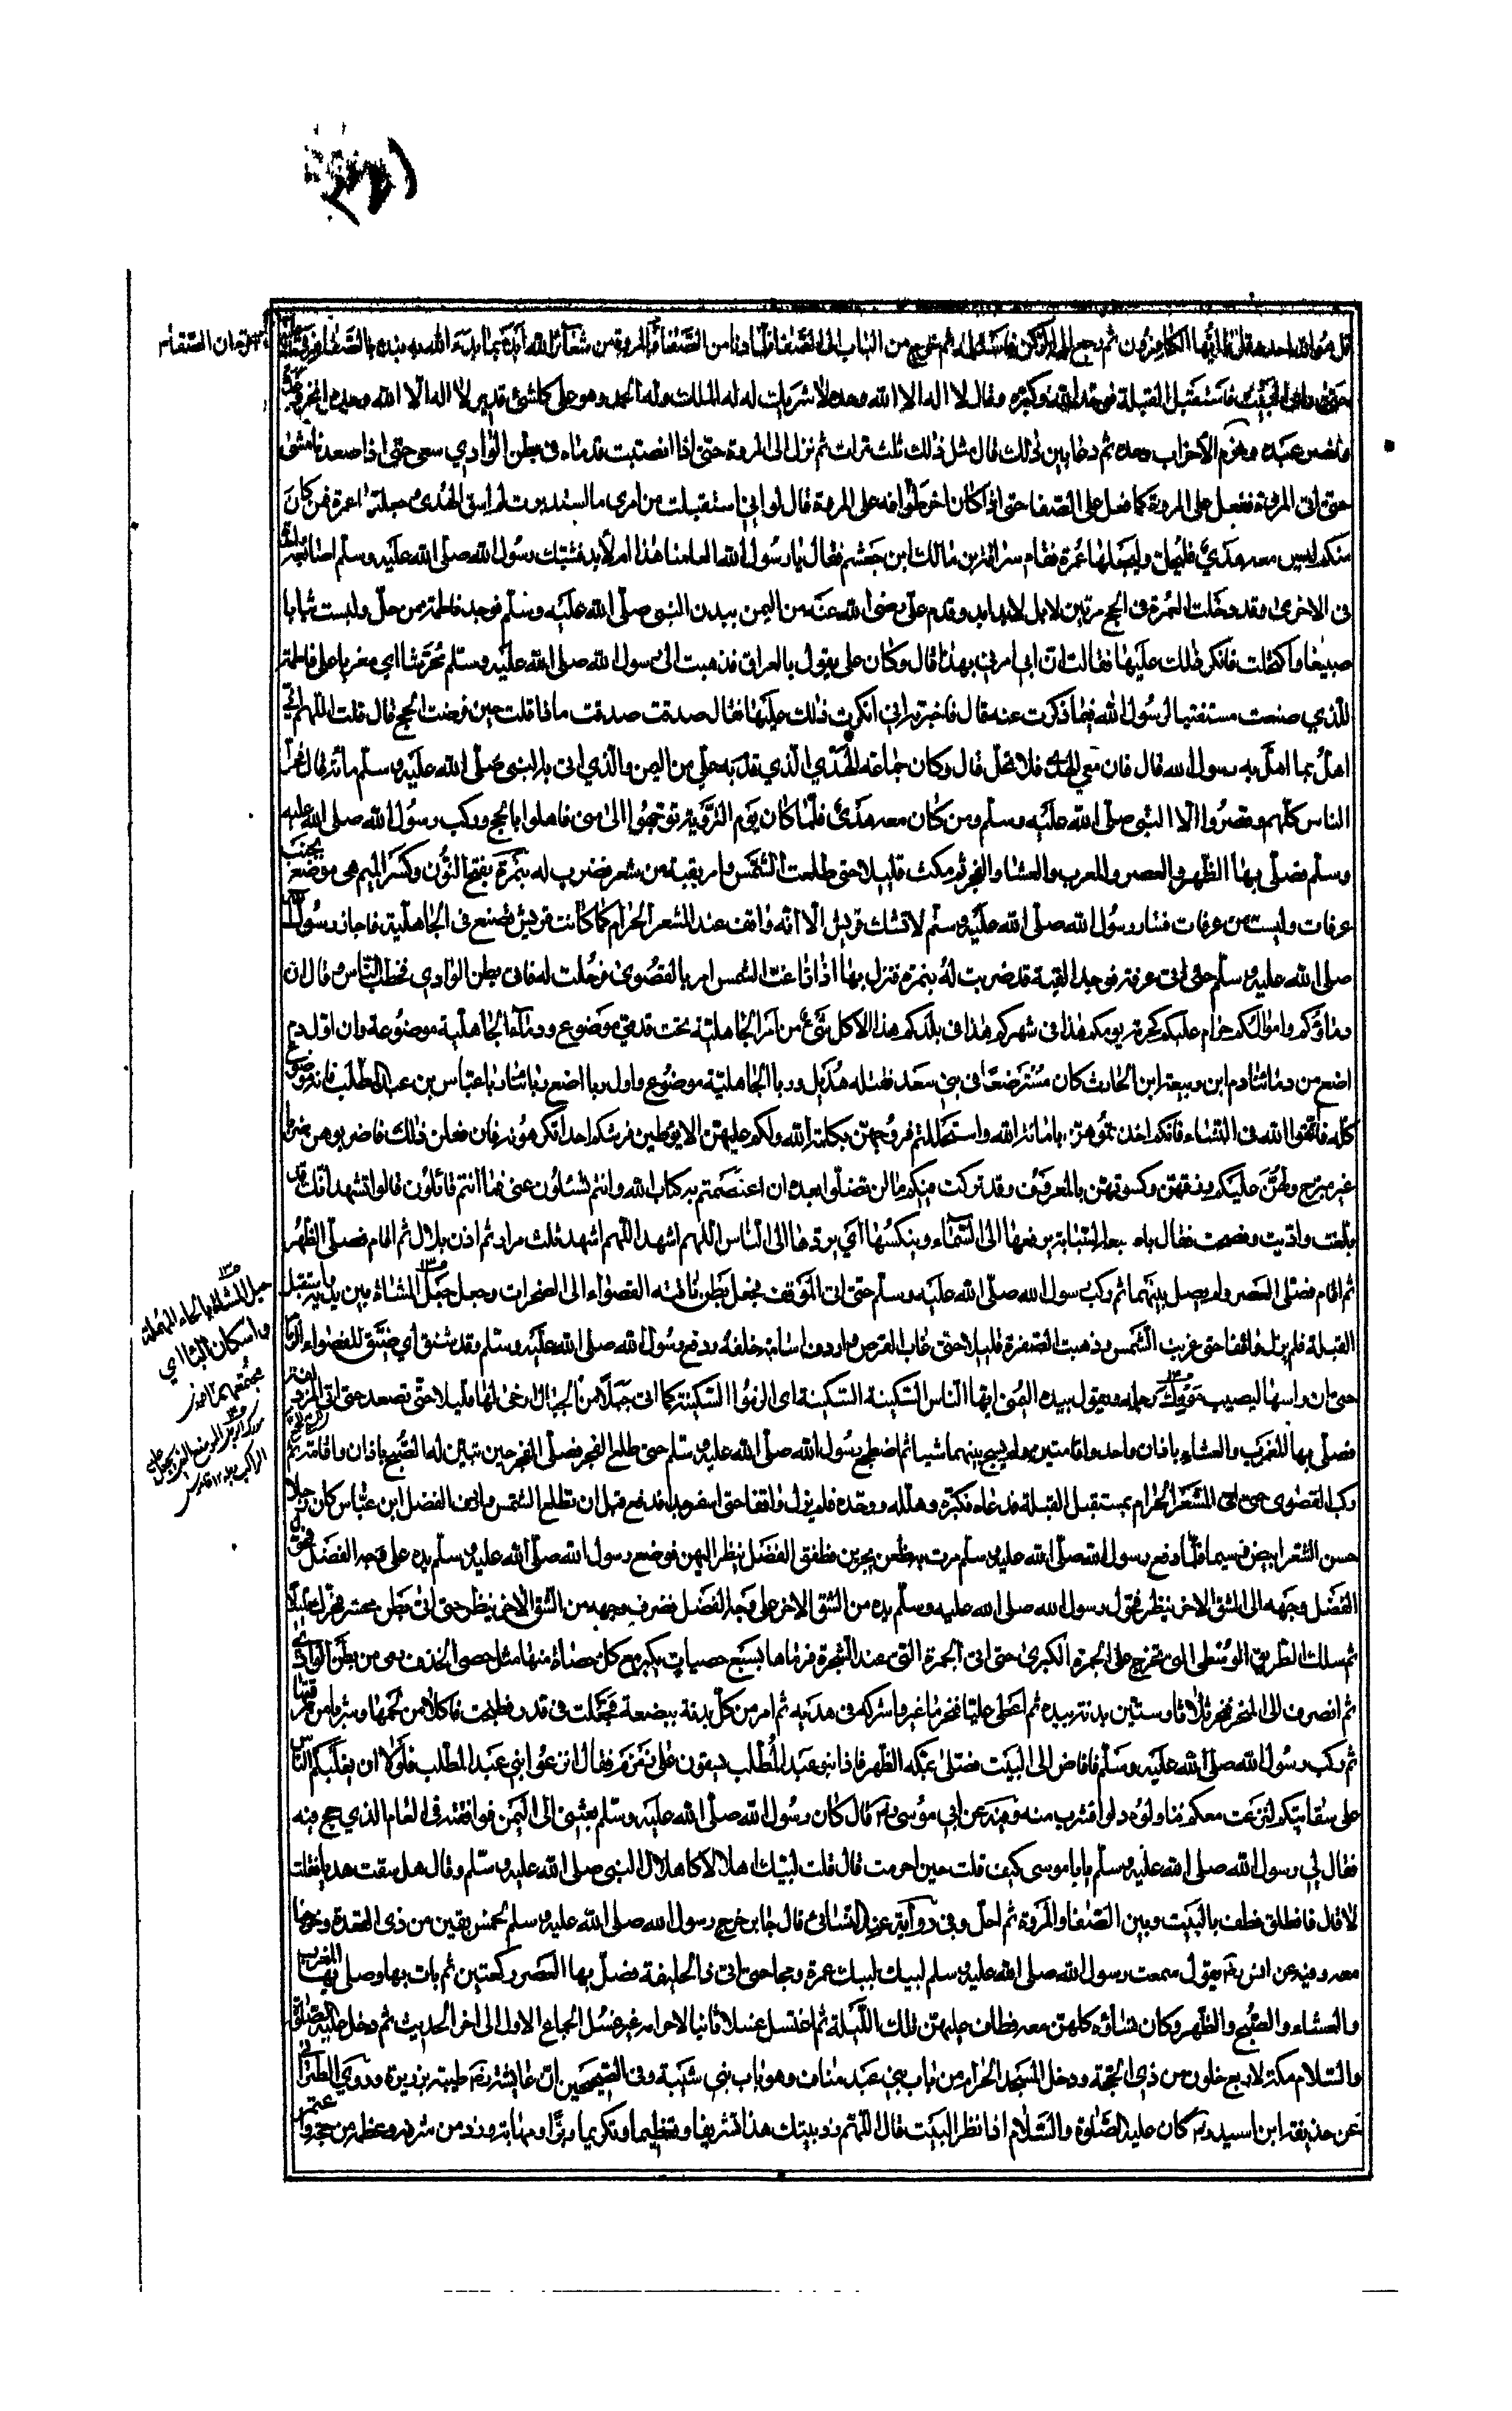 قل هو الله احد وقل يا ايها الكافرون ثم رجع الى الركن فاستلمه ثم خرج من الباب الى الصفا فلما دنا من الصفا قرأ ان الصفا والمروة من شعائر الله ابدء بما بدء الله به فبدء بالصفا فرقى عليه
حتى راى البيت فاستقبل القبلة فوحد الله وكبره وقال لا اله الا الله وحده لا شريك له له الملك وله الحمد وهو على كل شئ قدير لا اله الا الله وحده انجز وعده
ونصر عبده وهزم الاحزاب وحده ثم دعا بين ذلك قال مثل ذلك ثلث مرات ثم نزل الى المروة حتى اذا انصبت قدماه فى بطن الوادي سعى حتى اذا صعدنا مشى
حتى اتى المروة ففعل على المروة كما فعل على الصفا حتى اذا كان اخر طوافه على المروة قال لو اني استقبلت من امرى ما استدبرت لم اسق الهدى وجعلتها عمرة فمن كان
منكم ليس معه هدي فليحل وليجعلها عمرة فقام سراقة بن مالك ابن جعشم فقال يا رسول الله العامنا هذا ام لابد فشبك رسول الله صلى الله عليه وسلم اصابعه
فى الاخرى وقد دخلت العمرة فى الحج مرتين لا بل لابد ابد وقدم علي رضى الله عنه من اليمن ببدن النبى صلى الله عليه وسلم فوجد فاطمة ممن حل ولبست ثيابا
صبيغا واكتحلت فانكر ذلك عليها فقالت ان ابى امرني بهذا قال وكان على يقول بالعراق فذهبت الى رسول الله صلى الله عليه وسلم محرشا اي مغريا على فاطمة
للذي صنعت مستفتيا لرسول الله فيما ذكرت عنه قال فاخبرته اني انكرت ذلك عليها فقال صدقت صدقت ماذا قلت حين فرضت الحج قال قلت اللهم اني
اهل بما اهل به رسول الله قال فان معي الهدى فلا تحل قال وكان جماعة الهدي الذي قدم به على من اليمن والذي اتى به النبى صلى الله عليه وسلم مائة قال فحل
الناس كلهم وقصروا الا النبي صلى الله عليه وسلم ومن كان معه هدى فلما كان يوم التروية توجهوا الى منى فاهلوا بالحج وركب رسول الله صلى الله عليه
وسلم فصلى بها الظهر والعصر والمغرب والعشاء والفجر ثم مكث قليلا حتى طلعت الشمس وامر بقبة من شعر فضرب له بنمرة بفتح النون وكسر الميم هى موضع بجنب
عرفات وليست من عرفات فسار رسول الله صلى الله عليه وسلم لا تشك قريش الا انه واقف عند المشعر الحرام كما كانت قريش تصنع فى الجاهلية فاجاز رسول الله
صلى الله عليه وسلم حتى اتى عرفة فوجد القبة قد ضربت له بنمرة فنزل بها اذا زاغت الشمس امر بالقصوى فرحلت له فاتى بطن الوادي فخطب الناس وقال ان
دمائكم واموالكم حرام عليكم كحرمة يومكم هذا فى شهركم هذا فى بلدكم هذا الا كل شئ من امر الجاهلية تحت قدمي موضوع ودماء الجاهلية موضوعة وان اول دم
اضع من دمائنا دم ابن ربيعة ابن الحارث كان مسترضعا فى بني سعد فقتله هذيل وربا الجاهلية موضوع واول ربا اضع ربانا ربا عباس بن عبد المطلب فانه موضوع
كله فاتقوا الله فى النساء فانكم اخذتموهن بامانة الله واستحللتم فروجهن بكلمة الله ولكم عليهن الا يوطين فرشكم احدا تكرهونه فان فعلن ذلك فاضربوهن ضربا
غير مبرح ولهن عليكم رزقهن وكسوتهن بالمعروف وقد تركت فيكم ما لن تضلوا بعده ان اعتصمتم به كتاب الله وانتم تسئلون عني فما انتم قائلون قالوا نشهد انك قد
بلغت واديت ونصحت فقال باصبعه السبابة يرفعها الى السماء وينكسها اي يردها الى الناس اللهم اشهد اللهم اشهد ثلث مرات ثم اذن بلال ثم اقام فصلى الظهر
ثم اقام فصلى العصر ولم يصل بينهما ثم ركب رسول الله صلى الله عليه وسلم حتى اتى الموقف فجعل بطن ناقته القصواء الى الصخرات وجعل حبل المشاة بين يديه واستقبل
القبلة فلم يزل واقفا حتى غربت الشمس وذهبت الصفرة قليلا حتى غاب القرص واردف اسامة خلفه ودفع رسول الله صلى الله عليه وسلم وقد شنق اي ضيق للقصواء الزمام
حتى ان راسها ليصيب مورك رحله ويقول بيده اليمنى ايها الناس السكينة السكينة اى الزموا السكينة كلما اتى حبلا من الحبال ارخى لها قليلا حتى تصعد حتى اتى المزدلفة
فصلى بها المغرب والعشاء باذان واحد واقامتين ولم يسبح بينهما شيئا ثم اضطجع رسول الله صلى الله عليه وسلم حتى طلع الفجر فصلى الفجر حين تبين له الصبح باذان واقامة ثم
ركب القصوى حتى اتى المشعر الحرام يستقبل القبلة فدعاه وكبره وهلله ووحده فلم يزل واقفا حتى اسفر جدا فدفع قبل ان تطلع الشمس واردف الفضل ابن عباس كان رجلا
حسن الشعر ابيض وسيما فلما دفع رسول الله صلى الله عليه وسلم مرت به ظعن يجرين فطفق الفضل ينظر اليهن فوضع رسول الله صلى الله عليه وسلم يده على وجه الفضل فحول
الفضل وجهه الى الشق الاخر ينظر فحول رسول الله صلى الله عليه وسلم يده من الشق الاخر على وجه الفضل فصرف وجهه من الشق الاخر ينظر حتى اتى بطن محسر فحرك قليلا
ثم سلك الطريق الوسطى التى تخرج على الجمرة الكبرى حتى اتى الجمرة التى عند الشجرة فرماها بسبع حصيات يكبر مع كل حصاة منها مثل حصى الخذف رمى من بطن الوادي
ثم انصرف الى المنحر فنحر ثلاثا وستين بدنة بيده ثم اعطى عليا فنحر ما غبر واشركه فى هديه ثم امر من كل بدنة ببضعة فجعلت فى قدر فطبخت فاكلا من لحمها وشربا من مرقتها
ثم ركب رسول الله صلى الله عليه وسلم فافاض الى البيت فصلى بمكة الظهر فاذا بنو عبد المطلب يسقون على زمزم فقال انزعوا بنى عبد المطلب فلولا ان يغلبكم الناس
على سقايتكم لنزعت معكم فناولوه دلوا فشرب منه وفيه عن ابي موسى رضـ قال كان رسول الله صلى الله عليه وسلم بعثنى الى اليمن فوافقته فى العام الذي حج فيه
فقال لي رسول الله صلى الله عليه وسلم يا ابا موسى كيف قلت حين احرمت قال قلت لبيك اهلالا كاهلال النبى صلى الله عليه وسلم وقال هل سقت هديا فقلت
لا قال فانطلق فطف بالبيت وبين الصفا والمروة ثم احل وفى رواية عند النسائى قال جابر خرج رسول الله صلى الله عليه وسلم لخمس بقين من ذى القعدة وخرجنا
معه وفيه عن انس رضـ يقول سمعت رسول الله صلى الله عليه وسلم لبيك لبيك عمرة وحجا حتى اتى ذا الحليفة فصلى بها العصر ركعتين ثم بات بها وصلى بها المغرب
والعشاء والصبح والظهر وكان نساؤه كلهن معه فطاف عليهن تلك الليلة ثم اغتسل غسلا ثانيا لاحرامه غير غسل الجماع الاول الى اخر الحديث ثم دخل عليه الصلوة
والسلام مكة لاربع خلون من ذي الحجة ودخل المسجد الحرام من باب بني عبد مناف وهو باب بني شيبة وفى الصحيحين ان عائشة رضـ طيبته بذريرة وروي الطبراني
عن حذيفة ابن اسيد رضـ كان عليه الصلوة والسلام اذا نظر البيت قال اللهم زد بيتك هذا تشريفا وتعظيما وتكريما وبرا ومهابة وزد من شرفه وعظمه من حجه واعتمره
حبل المشاة بالحاء المهملة
واسكان الباء اي
مجتمعهم